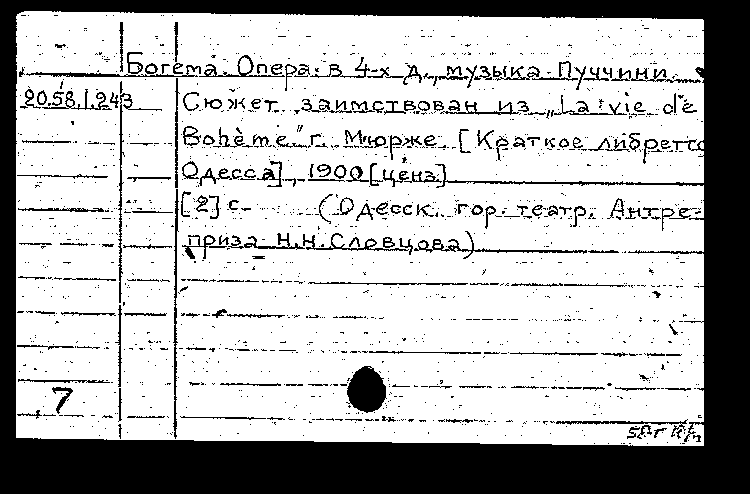 Богема. Опера в 4-х д., музыка Пуччини.
20.58.1.243 Сюжет заимствован из „La vie de
Bohème" г. Мюрже. [Краткое либретто
Одесса], 1900 [ценз]
[2] с. (Одесск. гор. театр. Антре-
приза Н.Н. Словцова)
7